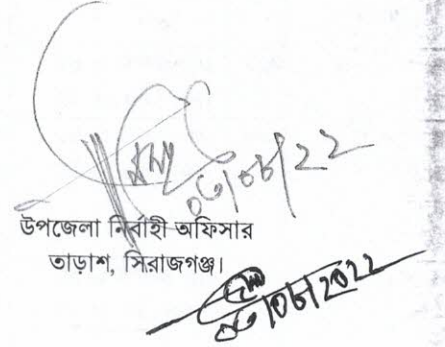 ০৩/০৮/২২
উপজেলা নির্বাহী অফিসার
তাড়াশ, সিরাজগঞ্জ।
০৩/০৮/২০২২